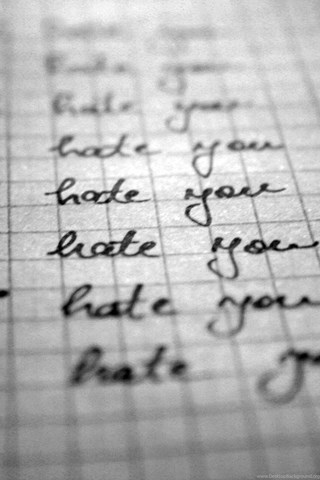 hate you
hate you
hate you
hate you
hate you
hate you
hate